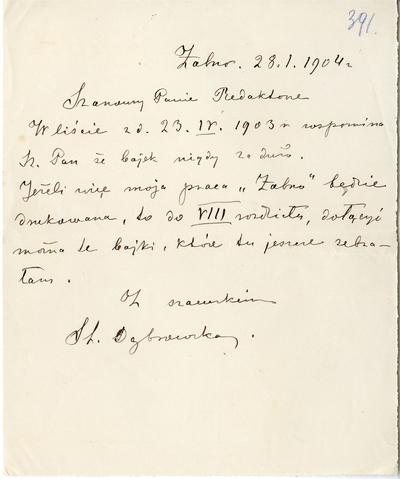 391.
Żabno. 28.1.1904 r
Szanowny Panie Redaktorze
W liście z d. 23.IV. 1903 r wspomina
Sz. Pan że bajek nigdy za dużo.
Jeżeli więc moja praca „Żabno" będzie
drukowana, to do VIII rozdziału, dołączyć
można te bajki, które tu jeszcze zebra-
łam.
Z szacunkiem
St. Dąbrowska.